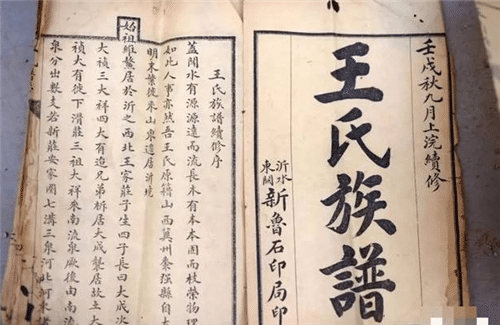 壬戌秋九月上浣續修
王氏族譜
沂水東關新魯石印局印
王氏族譜續修序
蓋聞水有源源遠而流長木有本本固而枝榮物理
如此人事亦然吾王氏原籍山西冀州棗强縣自大
明東來山東遷居沂境
始祖維鰲居於沂之西北王家莊子生四子長曰大成次
大禎三大祥四大有迨兄弟析居大成襲居故土大
禎大有徙下滑莊三祖大祥來南流泉厥後由南流
泉分出數支若新莊安家圈七溝三泉河北河東者